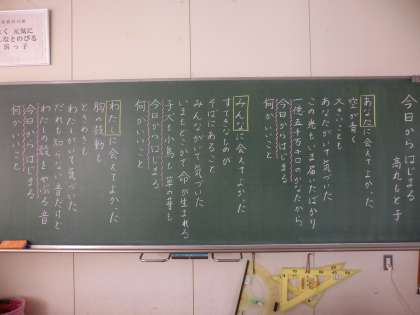 く 元気に
んなとのびる
浜っ子
今日からはじまる
高丸もと子
あなたに会えてよかった
空が青く
大きいことも
あなたがいて気づいた
この光もいま届いたばかり
一億五千万キロのかなたから
今日からはじまる
何かいいこと
みんなに会えてよかった
すてきなものが
そばにあること
みんながいて気づいた
いまもどこかで命が生まれる
子犬も小鳥も草の芽も
今日からはじまる
何かいいこと
わたしに会えてよかった
胸の鼓動も
ときめきも
わたしがいて気づいた
だれも知らない音だけど
わたしの殻をやぶる音
今日からはじまる
何かいいこと